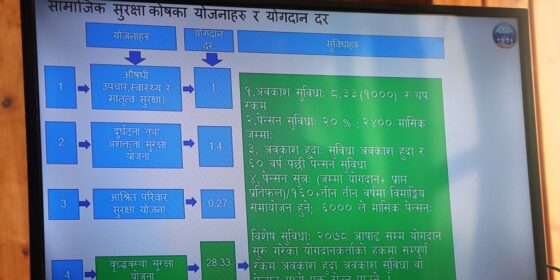 सामाजिक सुरक्षा कोषका योजनाहरु र योगदान दर
योजनाहरु
योगदान
दर
सुविधाहरु
1
औषधी
उपचार,स्वास्थ्य र
मातृत्व सुरक्षा।
1
2
दुर्घटना तथा
अशक्तता सुरक्षा
योजना
1.4
3
आश्रित परिवार
सुरक्षा योजना
0.27
4
वृध्दवस्था सुरक्षा
योजना
28.33
१.अवकाश सुविधाः ८.३३(१०००) र थप
रकम
२.पेन्सन सुविधाः २० % ; २४०० मासिक
जम्माः
३. अवकाश हुदाः सुविधा अवकाश हुदा र
६० वर्ष पछी पेन्सन सुविधा
४.पेन्सन सुत्रः (जम्मा योगदान+ प्राप्त
प्रतिफल)/१६०+तीन तीन वर्षमा
समायोजन हुने; ६००० ले मासिक पेन्सनः
विशेष सुविधाः २०७८ आषाढ सम्म योगदान
सुरु गरेका योगदानकर्ताको हकमा सम्पूर्ण
रकम अवकाश हुदा अवकाश सुविधा वा